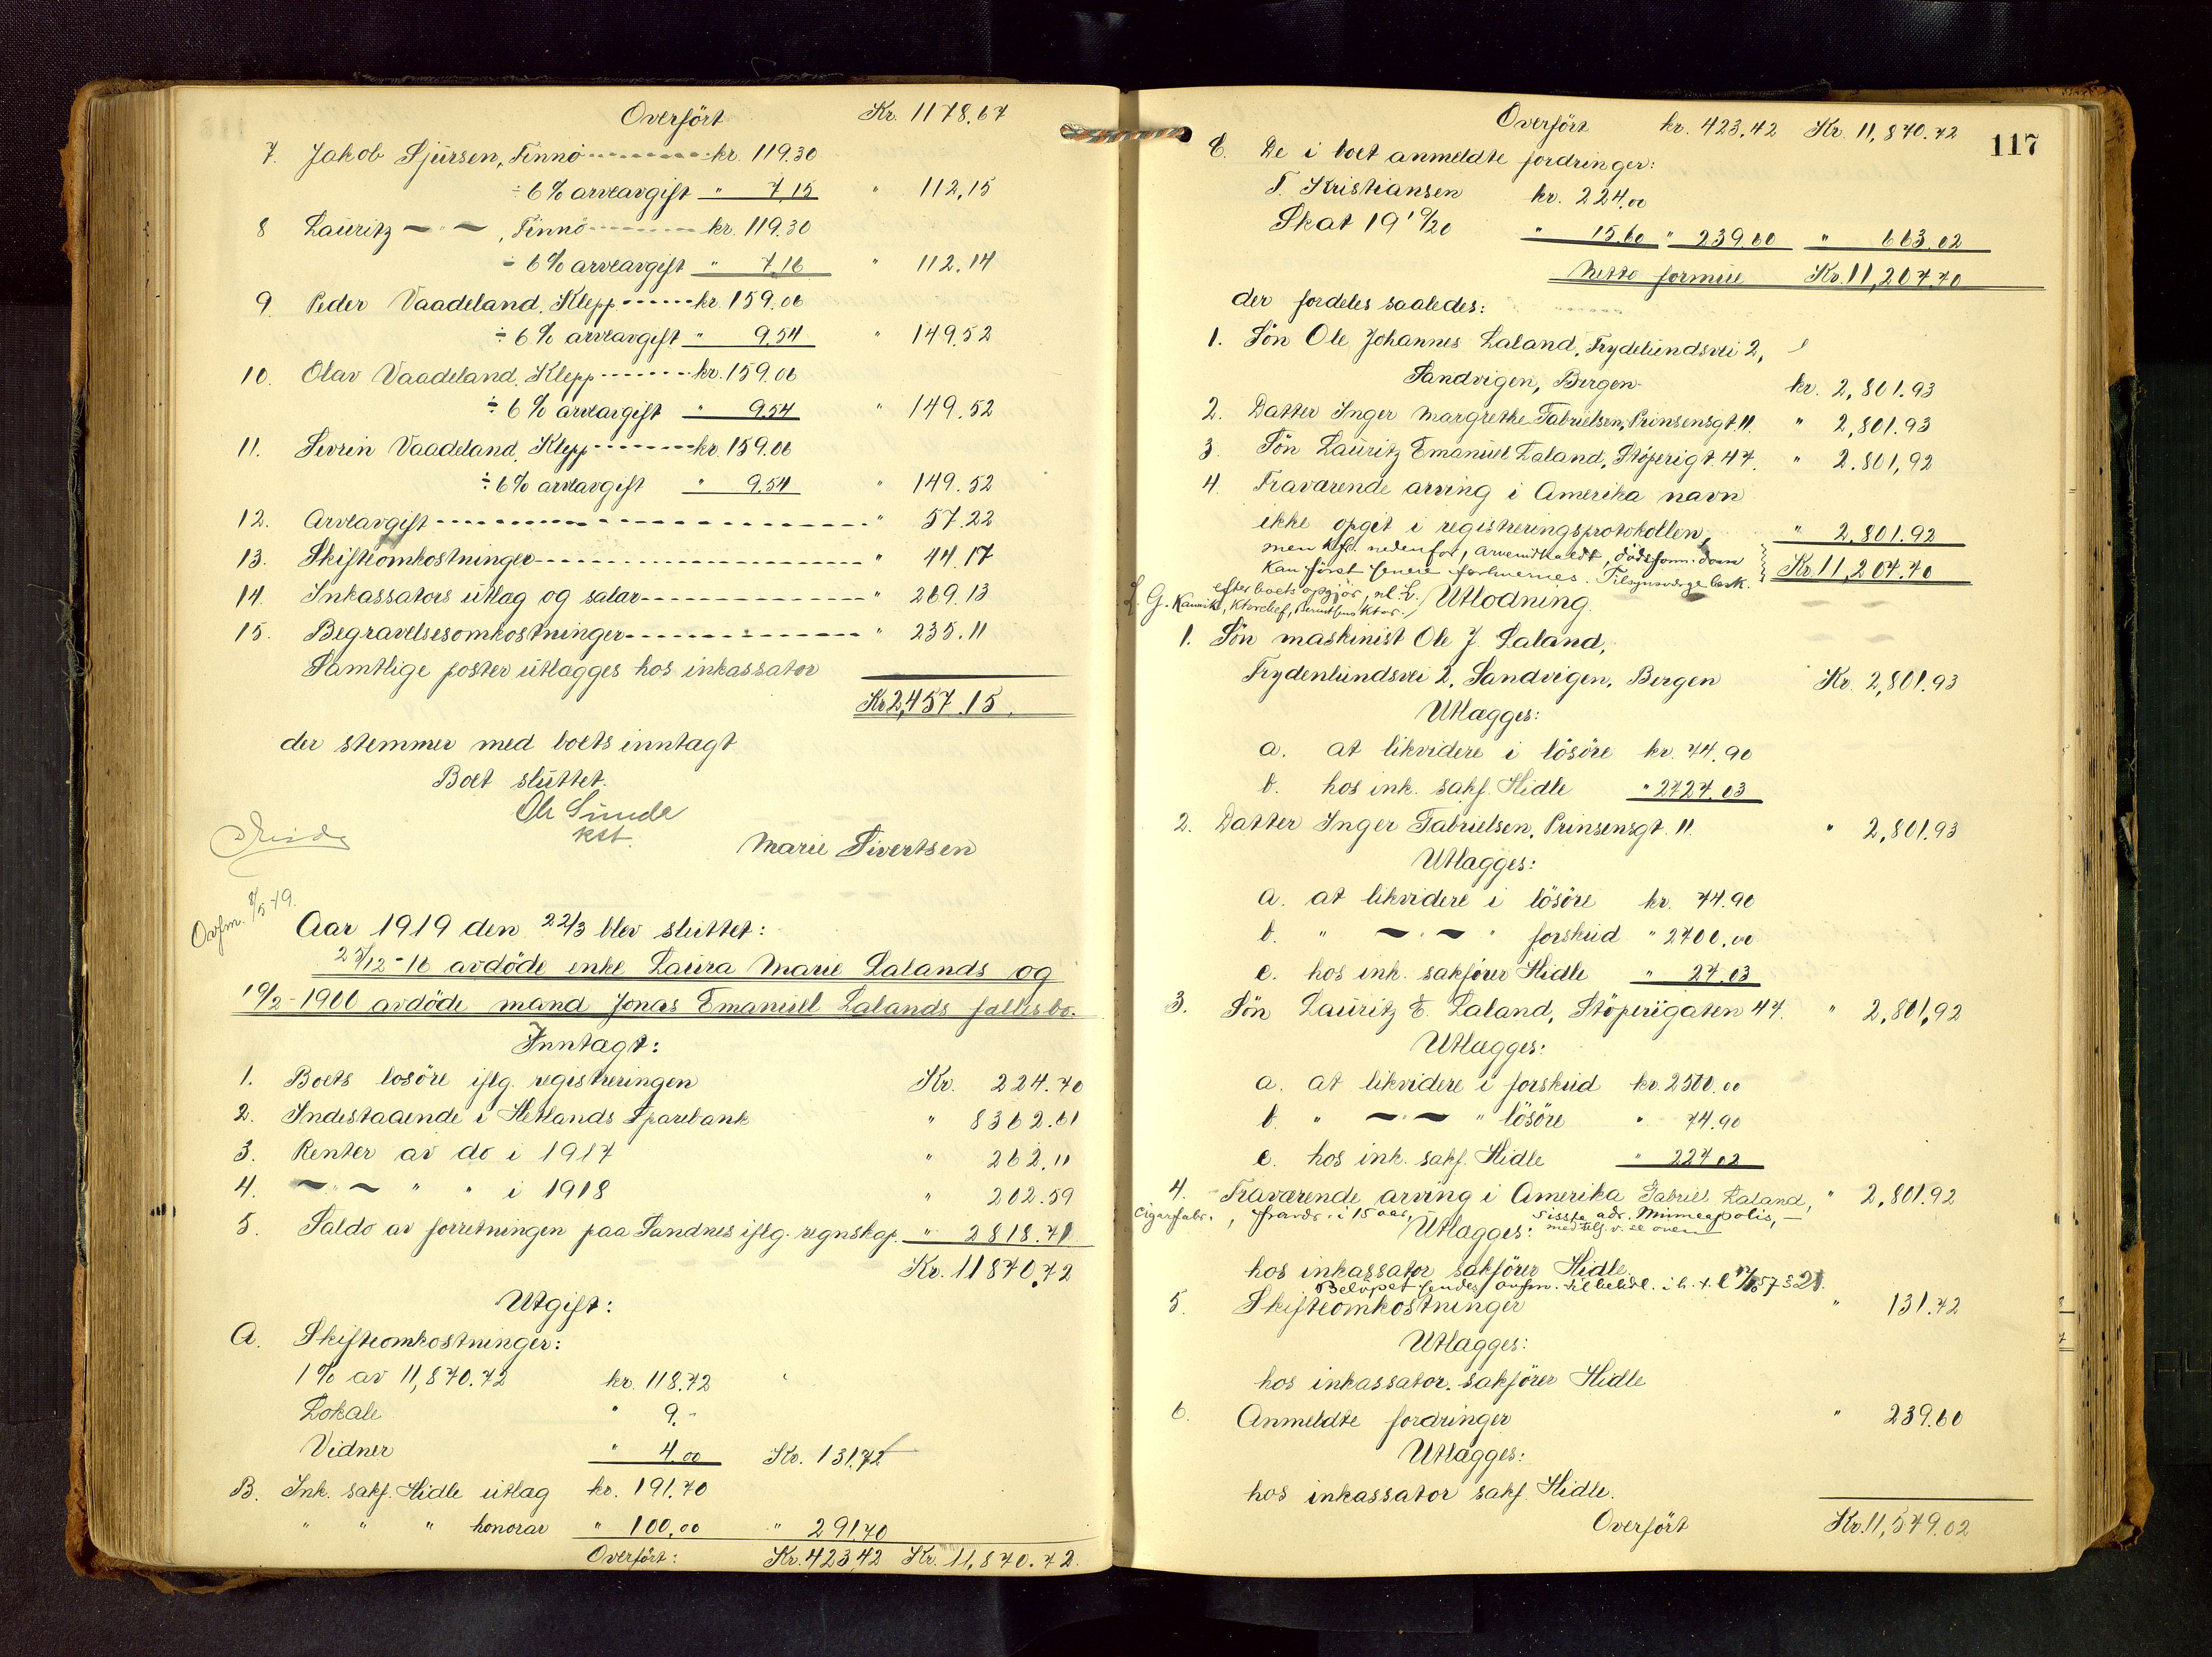 Overført Kr. 1178.67
7. Jakob Sjursen, Finnö kr. 119.30
÷ 6% arveavgift " 7,15 " 112,15
8 Lauritz — " — , Finnö kr. 119.30
÷ 6% arveavgift " 7,16 " 112.14
9. Peder Vaadeland, Klepp kr. 159.06
÷ 6% arveavgift " 9.54 " 149.52
10. Olav Vaadeland, Klepp kr. 159.06
÷ 6% arveavgift " 9.54 " 149.52
11. Sevrin Vaadeland, Klepp kr. 159.06
÷ 6% arveavgift " 9.54 " 149.52
12. Arveavgift " 57.22
13. Skifteomkostninger " 44.17
14. Inkassators utlag og salar " 269.13
15. Begravelsesomkostninger " 235.11
Samtlige poster utlægges hos inkassator
Kr 2,457.15.
der stemmer med boets inntægt
Boet sluttet.
Ole Sunde
kst.
Marie Sivertsen
Avfm. 8/5-19.
Aar 1919 den 22/3 blev sluttet:
25/12-16 avdöde enke Laura Marie Lalands og
19/2-1900 avdöde mand Jonas Emanuel Lalands fællesbo.
Inntægt:
1. Boets losöre iflg. registreringen Kr. 224.70
2. Indestaaende i Hetlands Sparebank " 8362.61
3. Renter av do i 1917 " 262.11
4. — " — " " i 1918 " 202.59
5. Saldo av forretningen paa Sandnes iflg. regnskap " 2818.71
Kr. 11870.72
Utgift:
A. Skifteomkostninger:
1% av 11,870.72 kr. 118.72
Lokale " 9.-
Vidner " 4.00 Kr. 131.72
B. Ink. sakf. Hidle utlæg kr. 191.70
" " " honorar " 100.00 " 291.70
Overført: Kr. 423,42 Kr. 11,870.72.
117
Overført kr. 423.42 Kr. 11,870.72
C. De i boet anmeldte fordringer:
T. Kristiansen kr. 224.00
Skat 1919/20 " 15.60 " 239.60 " 663.02
Netto formue Kr. 11,207.70
der fordeles saaledes:
1. Sön Ole Johannes Laland, Frydelundsvei 2,
Sandvigen, Bergen kr. 2,801.93
2. Datter Inger Margrethe Gabrielsen, Prinsensgt. 11. " 2,801.93
3. Sön Lauritz Emanuel Laland, Støperigt. 47. " 2.801,92
4. Fraværende arving i Amerika navn
ikke opgit i registreringsprotokollen, " 2,801.92
men kfr. nedenfor, dödsform. dom
kan först senere Tilsynsværge besk. Kr. 11,207.70
efter boets opgjör,
Utlodning.
1. Sön maskinist Ole J. Laland,
Frydenlundsvei 2, Sandvigen, Bergen Kr. 2,801.93
Utlægges:
a. at likvidere i lösöre kr. 74.90
b. hos ink. sakf. Hidle " 2727.03
2. Datter Inger Gabrielsen, Prinsensgt. 11. " 2,801.93
Utlægges:
a. at likvidere i lösöre kr. 74.90
b. " — " — " forskud " 2700,00
c. hos ink. sakfører Hidle " 27.03
3. Sön Lauritz E. Laland, Stöperigaten 47. " 2,801,92
Utlægges:
a. at likvidere i forskud kr. 2500.00
b. " — " — " lösöre " 74.90
c. hos ink. sakf. Hidle " 227 02
4. Fraværende arving i Amerika Gabriel Laland, " 2,801.92
Cigarfabr., fravær. i 15 aar, sisste adr. Minneapolis, —
Utlægges:
hos inkassator sakfører Hidle.
Belöpet sendes
5. Skifteomkostninger " 131.72
Utlægges:
hos inkassator. sakförer Hidle
6. Anmeldte fordringer " 239.60
Utlægges:
hos inkassator sakf. Hidle.
Overfört Kr. 11,579.02